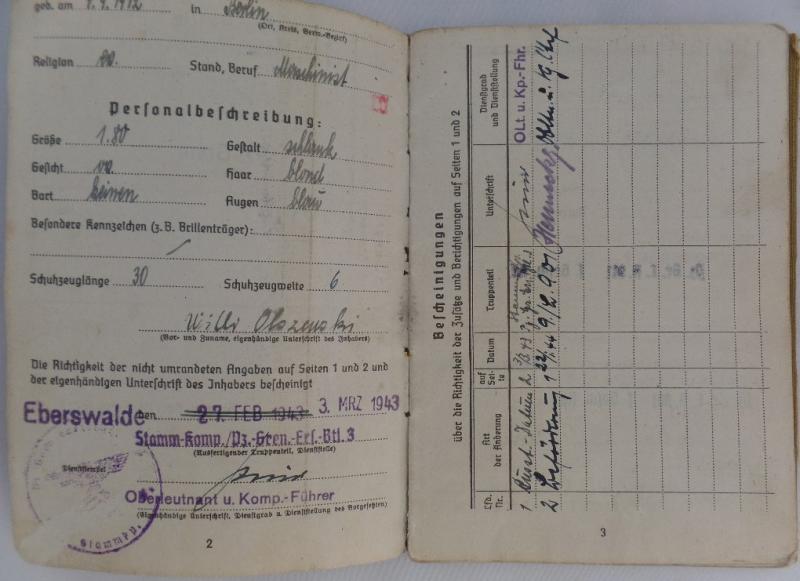 geb. am 9.9.1912 in Berlin
(Ort, Kreis, Verw.-Bezirk)
Religion vv. Stand, Beruf Maschinist
Personalbeschreibung:
Größe 1.80 Gestalt schlank
Gesicht vv. Haar blond
Bart keinen Augen blau
Besondere Kennzeichen (z. B. Brillenträger):
Schuhzeuglänge 30 Schuhzeugweite 6
Willi Olszenski
(Vor- und Zuname, eigenhändige Unterschrift des Inhabers)
Die Richtigkeit der nicht umrandeten Angaben auf Seiten 1 und 2
und der eigenhändigen Unterschrift des Inhabers bescheinigt
Eberswalde den 27. FEB 1943 3. MRZ 1943
Stamm-Komp./Pz.-Gren.-Ers.-Btl. 3
(Ausfertigender Truppenteil, Dienststelle)
Dienststempel
Oberleutnant u. Komp.-Führer
(Eigenhändige Unterschrift, Dienstgrad u. Dienststellung des Vorgesetzten)
2
Bescheinigungen
über die Richtigkeit der Zusätze und Berichtigungen auf Seiten 1 und 2
Lfd. Nr.
Art der Änderung
auf Seite
Datum
Truppenteil
Unterschrift
Dienstgrad und Dienststellung
1 -Datum 2 3/3 43 OLt. u. Kp.-Fhr.
2 Beförderung 1 22/1.44
3